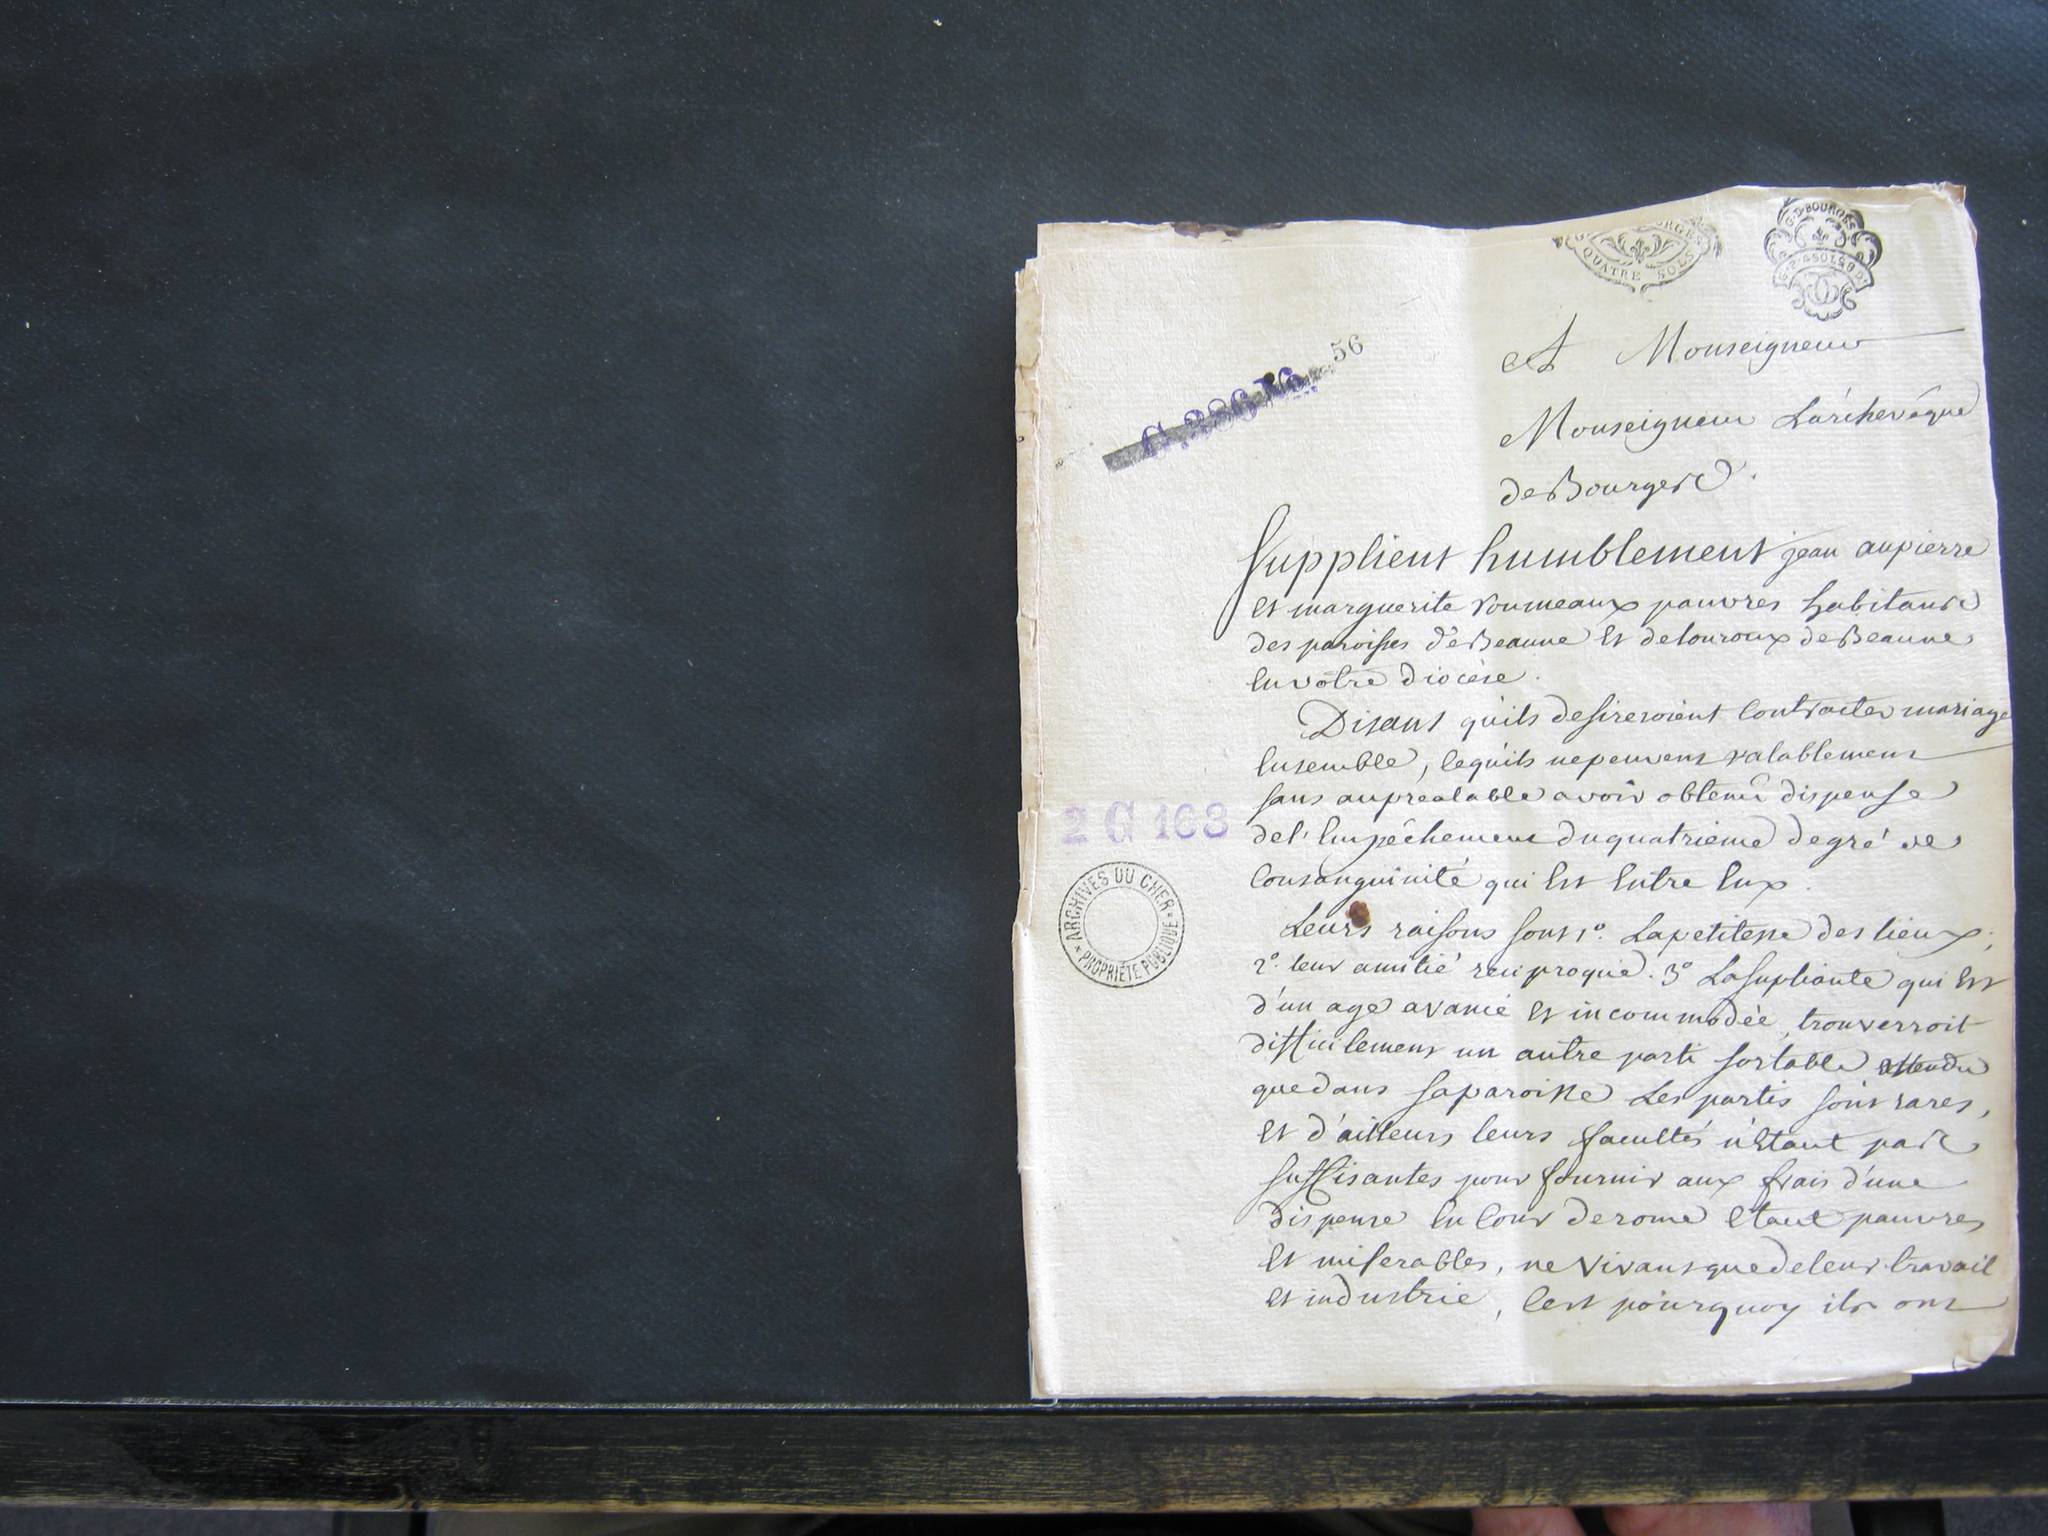 G. D. BOURGES
QUATRE SOLS
56
A Monseigneur
Monseigneur Lárchevêque
de Bourges.
Supplient humblement jean aupierre
et marguerite roumeaux pauvres habitans
des paroisses dé Beaune et de louroux de Beaune
en vôtre diocèse.
Disant qu'ils desireroient contracter mariage
ensemble, ce qu'ils ne peuvent valablement
sans au préalable avoir obtenu dispense
de l'empêchement du quatrieme degré de
consanguinité qui est entre eux.
Leurs raisons sont 1º. La petitesse des lieux;
2º. leur amitié reciproque. 3º La supliante qui est
d'un age avancé et incommodée, trouverroit
difficilement un autre parti sortable attendu
que dans sa paroisse Les partis sont rares,
et d'ailleurs leurs facultés n'étant pas
suffisantes pour fournir aux frais d'une
dispense en Cour de rome étant pauvres
et miserables, ne vivans que de leur travail
et industrie, C'est pourquoy ils ont
2 G 168
ARCHIVES DU CHER
PROPRIÉTÉ PUBLIQUE